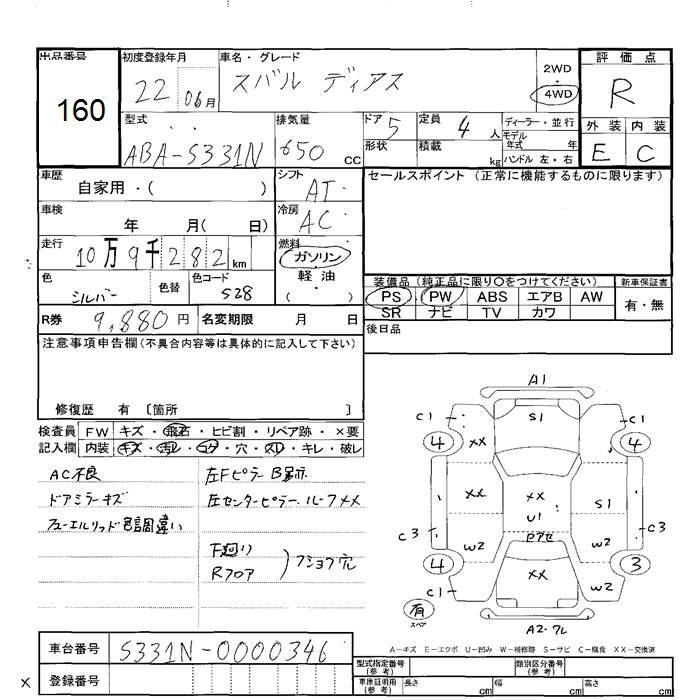 出品番号 初度登録年月 車名・グレード 評価点
160 22 06月 スバル ディアス 2WD 4WD R
型式 排気量 ドア 5 定員 4 人 ディーラー・並行 外装 内装
モデル
ABA-S331N 650 CC 形状 積載 kg 年式 年 E C
ハンドル 左・右
車歴 自家用・( ) シフト AT セールスポイント (正常に機能するものに限ります)
車検 年 月( 日) 冷房 AC
走行 10万9千282km 燃料 ガソリン・軽油・( )
色 シルバー 色替 色コード S28 装備品 (純正品に限り○をつけてください) 新車保証書
PS PW ABS エアB AW 有・無
SR ナビ TV カワ
R券 9,880円 名変期限 月 日 後日品
注意事項申告欄(不具合内容等は具体的に記入して下さい)
修復歴 有 〔箇所 〕
検査員 FW キズ・飛石・ヒビ割・リペア跡・×要
記入欄 内装 キズ・汚レ・コゲ・穴・スレ・キレ・破レ
AC不良 左Fピラー
ドアミラーキズ 左センターピラー、ルーフXX
フューエルリッド色調違い
F廻り
Rフロア プショブ穴
A1
C1 S1 C1
4 XX 4
XX XX S1
U1
C3 C3
W2 W2
4 XX W2 3
C1
有 スペア A2・ワレ
A-キズ E-エクボ U-凹み W-補修跡 S-サビ C-腐食 XX-交換済
車台番号 S331N-0000346 型式指定番号(参考) 類別区分番号(参考)
登録番号 車庫証明用(参考) 長さ cm 幅 cm 高さ cm
X